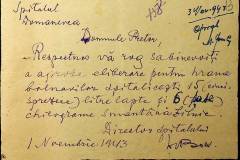 Spitalul
Domanevca
Domnule Pretor,
Respectuos vă rog să binevoiți
a aproba eliberare pentru hrana
bolnavilor spitalicești 15 (cinci-
sprezece) litre lapte și 6 (șase)
chilograme smântână zilnic.
Directorul spitalului
1 Noembrie 1943